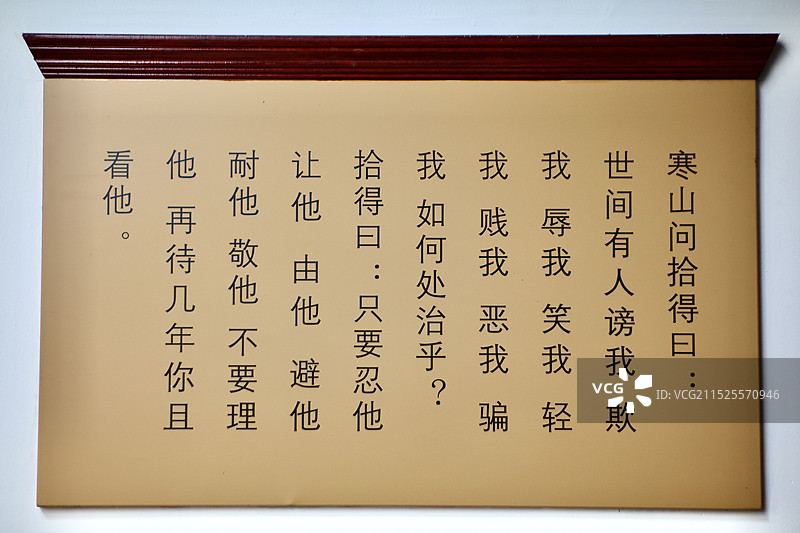 寒山问拾得曰：
世间有人谤我 欺
我 辱我 笑我 轻
我 贱我 恶我 骗
我 如何处治乎？
拾得曰：只要忍他
让他 由他 避他
耐他 敬他 不要理
他 再待几年你且
看他。
VCG
ID: VCG211525570946